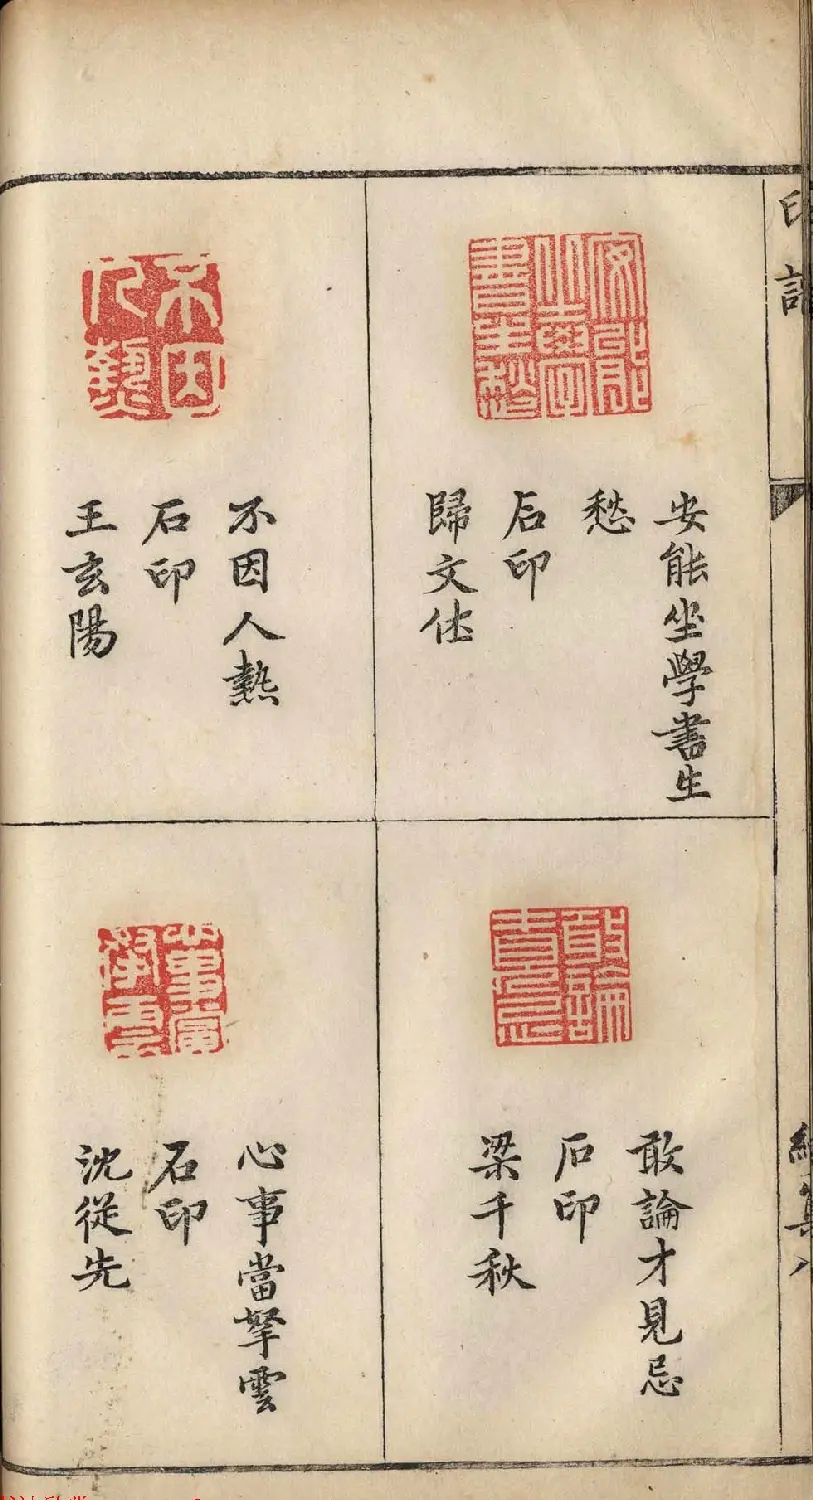 安能坐學書生
愁
石印
歸文休
敢論才見忌
石印
梁千秋
不因人熱
石印
王玄陽
心事當拏雲
石印
沈從先